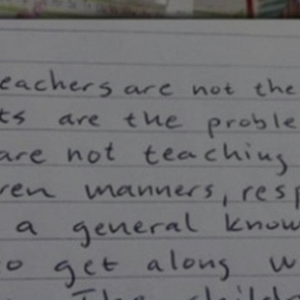 eachers are not the
ts are the proble
are not teaching
ren manners, resp
a general know
o get along w